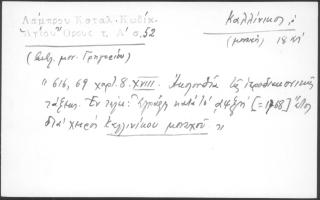 Λάμπρου Καταλ. Κωδίκ.
Ἁγίου Ὄρους τ. Α´ σ. 52
Καλλίνικος
(μοναχὸς) 18 αἰ
(Βιβλ. μον. Γρηγορίου)
"616, 69 χαρτ. 8. XVIII. Ἀκολουθία τῆς
τάξεως. Ἐν τέλει: Ἐγράφη κατὰ τὸ αψξη [=1768] ἔτος
διὰ χειρὸς Καλλινίκου μοναχοῦ "